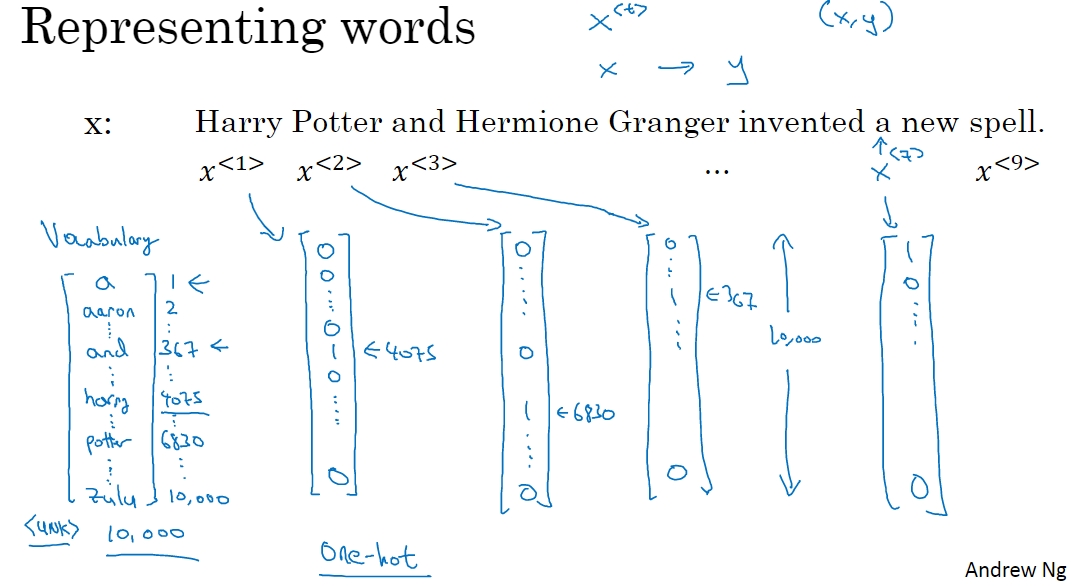 Representing words
x<t> (x,y)
x → y
x: Harry Potter and Hermione Granger invented a new spell.
x<1> x<2> x<3> ... x<7> x<9>
Vocabulary
a 1 ←
aaron 2
and 367 ←
harry 4075
potter 6830
zulu 10,000
<UNK> 10,000
0 0 0 1 0 0
←4075
0 0 1 0
←6830
0 1 0
←367
10,000
1 0 0
One-hot
Andrew Ng